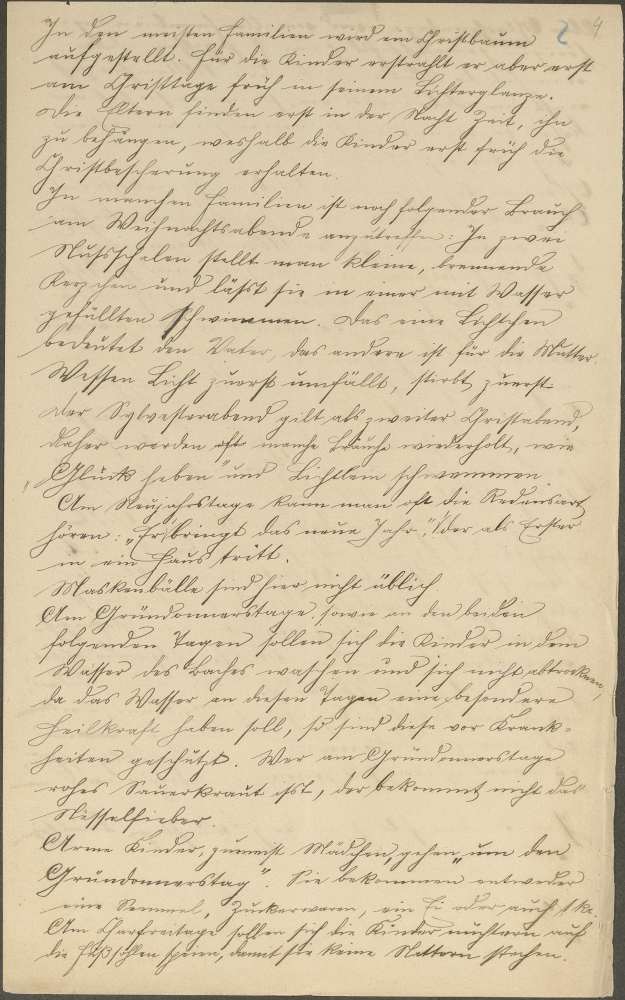 4
In den meisten Familien wird ein Christbaum
aufgestellt. Für die Kinder erstrahlt er aber erst
am Christtage früh in seinem Lichterglanze.
Die Eltern finden erst in der Nacht Zeit, ihn
zu behängen, weshalb die Kinder erst früh die
Christbescherung erhalten.
In manchen Familien ist noch folgender Brauch
am Weihnachtsabende anzutreffen: In zwei
Nußschalen stellt man kleine, brennende
Kerzchen und läßt sie in einer mit Wasser
gefüllten schwimmen. Das eine Lichtchen
bedeutet den Vater, das andere ist für die Mutter.
Wessen Licht zuerst umfällt, stirbt zuerst.
Der Sylvesterabend gilt als zweiter Christabend,
daher werden oft manche Bräuche wiederholt, wie
„Glück heben" und Lichtlein schwemmen.
Am Neujahrstage kann man oft die Redensart
hören: „Er bringt das neue Jahr", der als Erster
in ein Haus tritt.
Maskenbälle sind hier nicht üblich
Am Gründonnerstage, sowie an den beiden
folgenden Tagen sollen sich die Kinder in dem
Wasser des Baches waschen und sich nicht abtrocknen,
da das Wasser an diesen Tagen eine besondere
Heilkraft haben soll, so sind diese vor Krank-
heiten geschützt. Wer am Gründonnerstage
rohes Sauerkraut ißt, der bekommt nicht das
Nesselfieber.
Arme Kinder, zumeist Mädchen, gehen „um den
Gründonnerstag". Sie bekommen entweder
eine Semmel, Zuckerwaren, ein Ei oder auch 1 Kc.
Am Charfreitage sollen sich die Kinder nüchtern auf
die Fußsohlen speien, damit sie keine Nattern stechen.